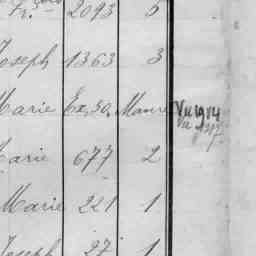 Fr. 2093 5
Joseph 1363 3
Marie Ex. 30. Maure
Marie 677 2
Marie 221 1
Joseph 27 1